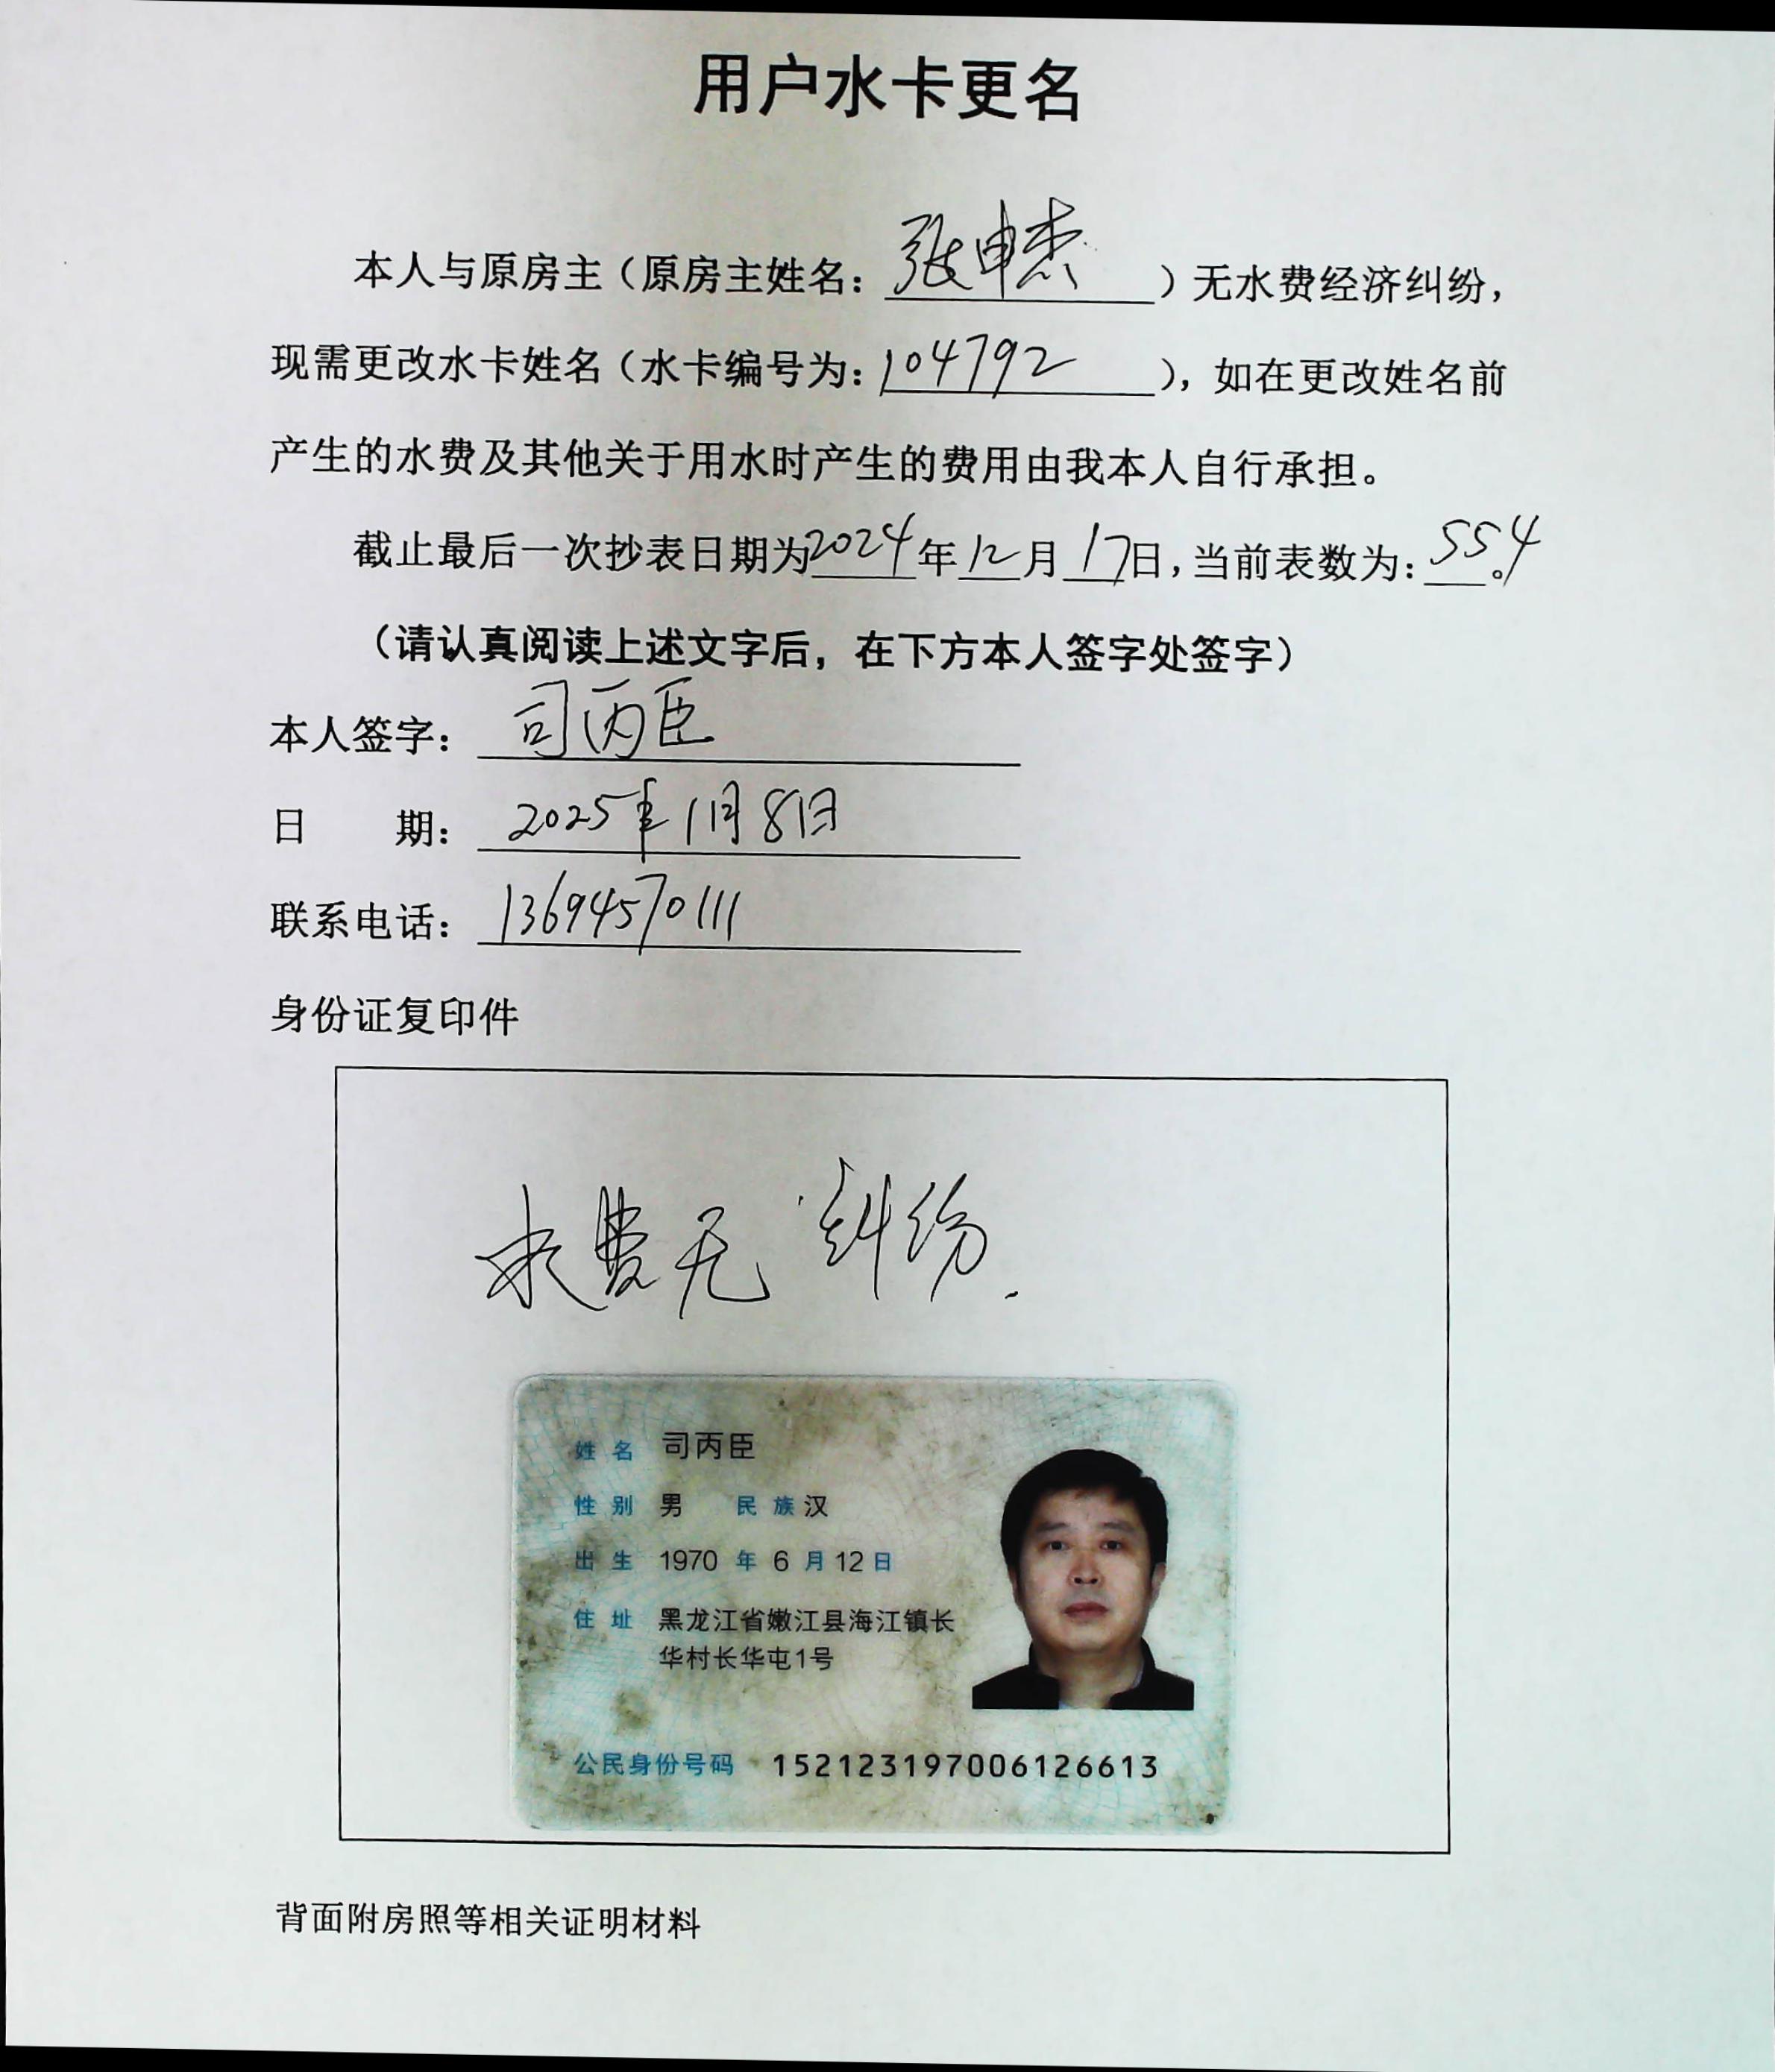 用户水卡更名
本人与原房主（原房主姓名：张申杰）无水费经济纠纷，
现需更改水卡姓名（水卡编号为：104792），如在更改姓名前
产生的水费及其他关于用水时产生的费用由我本人自行承担。
截止最后一次抄表日期为2024年12月17日，当前表数为：554。
（请认真阅读上述文字后，在下方本人签字处签字）
本人签字：司丙臣
日期：2025年1月8日
联系电话：13694570111
身份证复印件
水费无纠纷.
姓名 司丙臣
性别 男 民族 汉
出生 1970 年 6 月 12 日
住址 黑龙江省嫩江县海江镇长
华村长华屯1号
公民身份号码 152123197006126613
背面附房照等相关证明材料